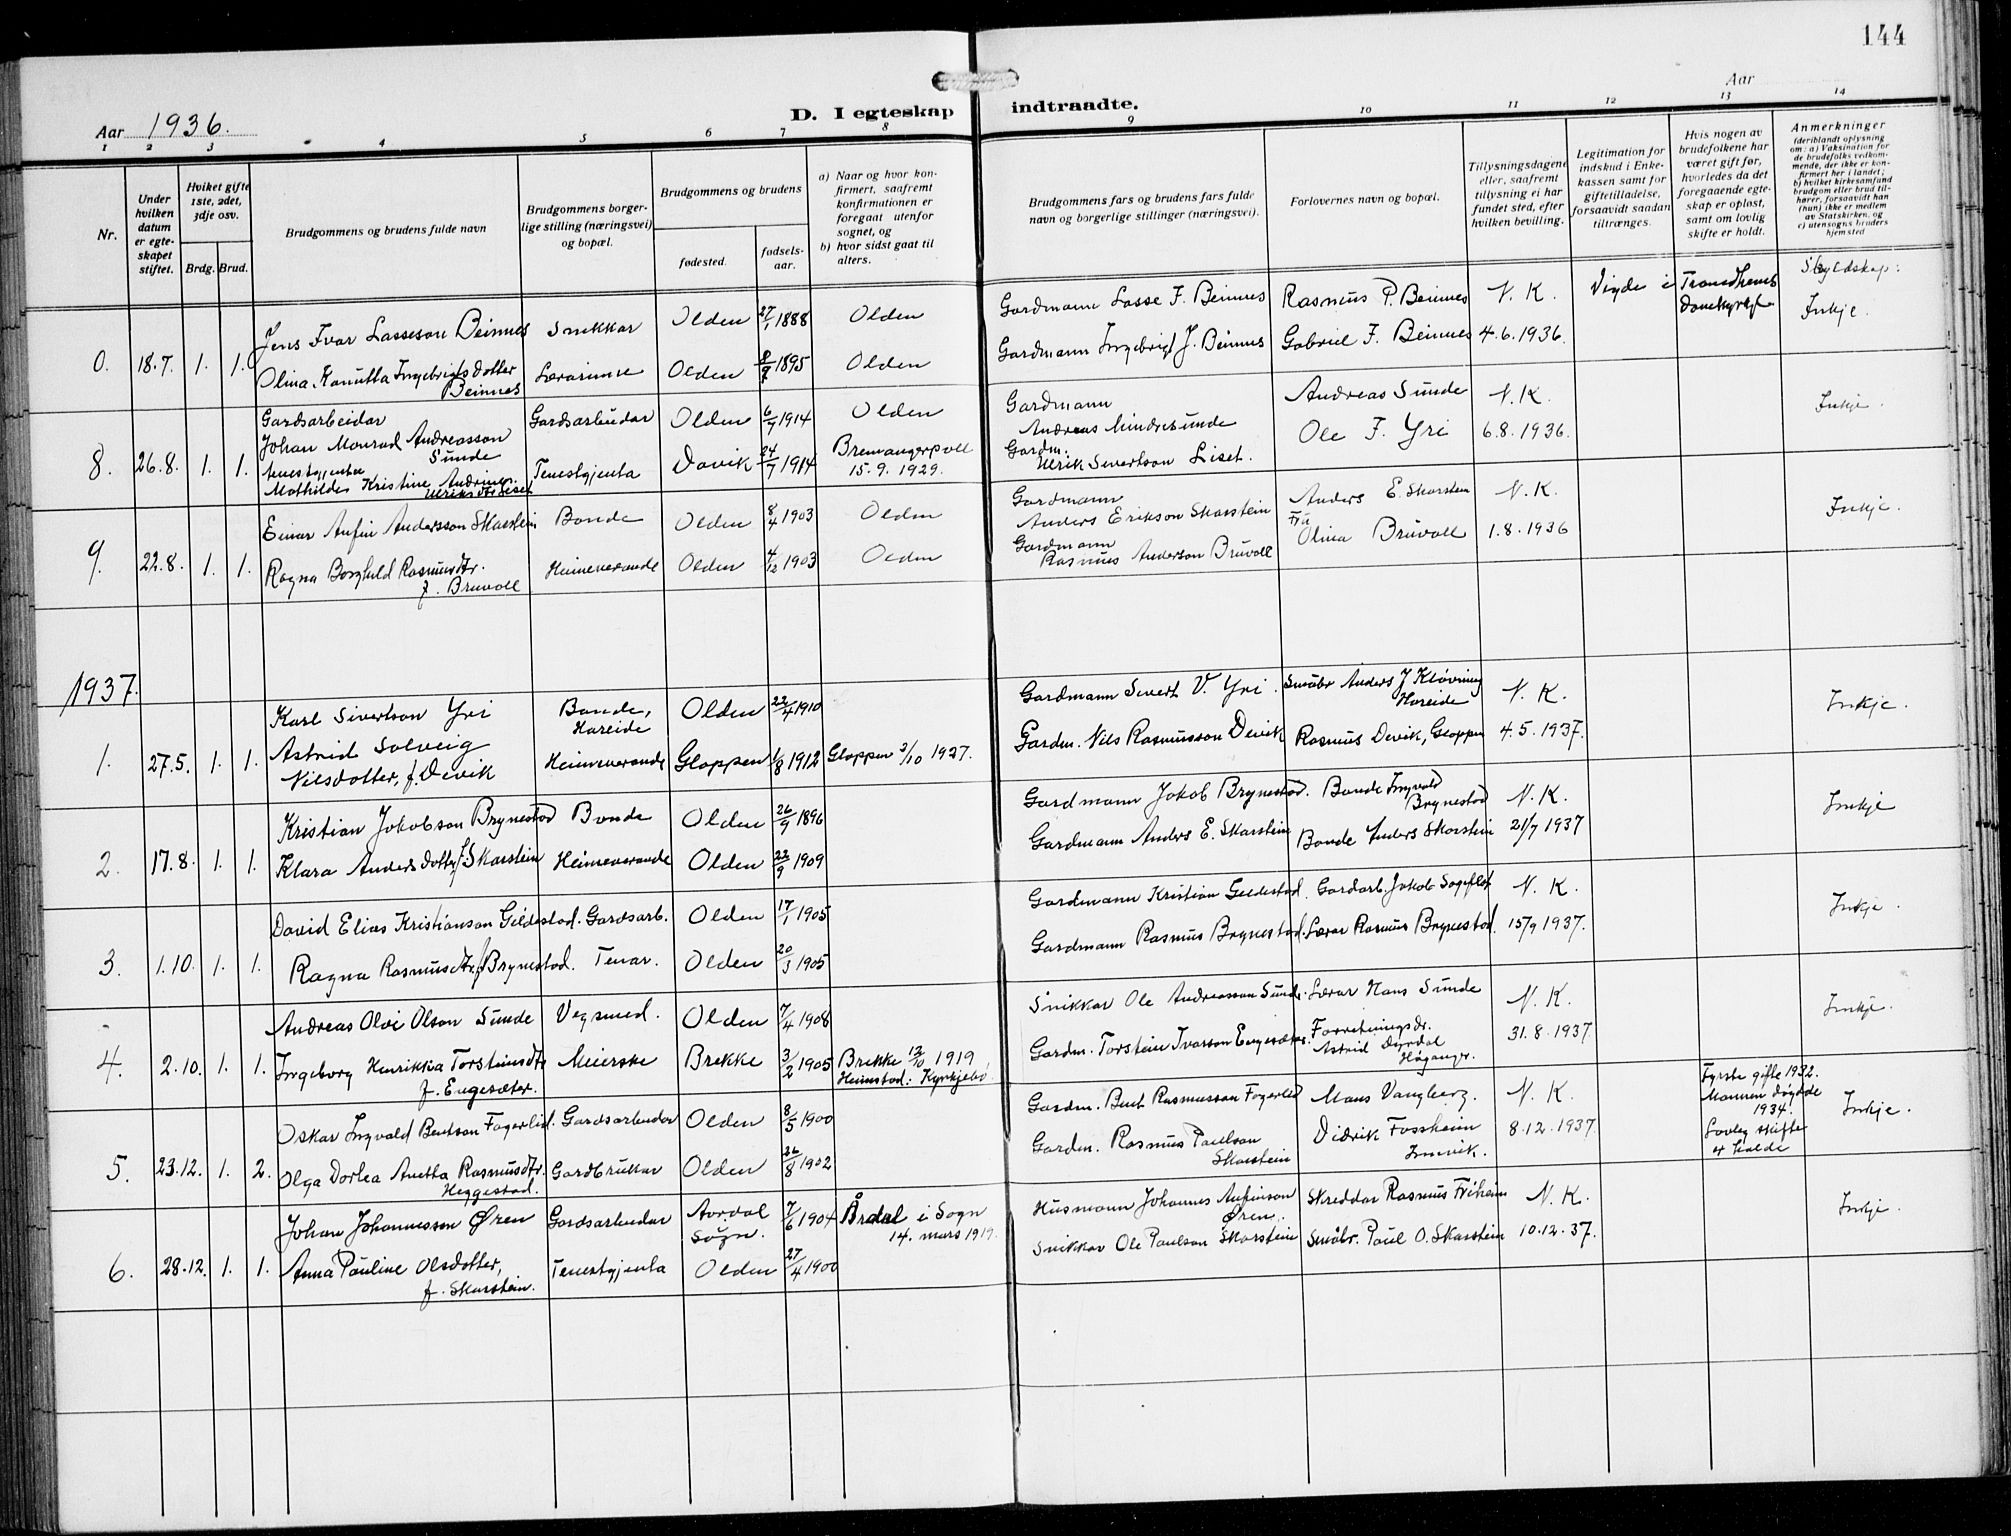 144
Aar 1936.
D. I egteskap indtraadte.
Aar
1 2 3 4 5 6 7 8 9 10 11 12 13 14
Nr.
Under hvilken datum er egteskapet stiftet.
Hviket gifte 1ste, 2det, 3dje osv.
Brdg. Brud.
Brudgommens og brudens fulde navn
Brudgommens borgerlige stilling (næringsvei) og bopæl.
Brudgommens og brudens
fødested. fødselsaar.
a) Naar og hvor konfirmert, saafremt konfirmationen er foregaat utenfor sognet, og
b) hvor sidst gaat til alters.
Brudgommens fars og brudens fars fulde navn og borgerlige stillinger (næringsvei).
Forlovernes navn og bopæl.
Tillysningsdagene eller, saafremt tillysning ei har fundet sted, efter hvilken bevilling.
Legitimation for indskud i Enkekassen samt for giftetilladelse, forsaavidt saadan tiltrænges.
Hvis nogen av brudefolkene har været gift før, hvorledes da det foregaaende egteskap er opløst, samt om lovlig skifte er holdt.
Anmerkninger
(deriblandt oplysning om: a) Vaksination for de brudefolks vedkommende, der ikke er konfirmert her i landet; b) hvilket kirkesamfund brudgom eller brud tilhører, forsaavidt han (hun) ikke er medlem av Statskirken, og c) utensogns bruders hjemsted
0. 18.7. 1. 1.
Jens Ivar Lasseson Beinnes Snikkar Olden 27/1 1888 Olden
Gardmann Lasse F. Beinnes Rasmus P. Beinnes N. K. Vigde i Trondheims Domkyrkje Skyldskap: Inkje.
Olina Kanutta Ingebrigtsdotter Beinnes Lærarinne Olden 8/7 1895 Olden
Gardmann Ingebrigt J. Beinnes Gabriel F. Beinnes 4.6.1936.
8. 26.8. 1. 1.
Gardsarbeidar Johan Monrad Andreasson Sunde Gardsarbeidar Olden 6/7 1914 Olden
Gardmann Andreas Mindresunde Andreas Sunde N.K. Inkje.
Tenestgjenta Mathilde Kristine Andrine Ulriksdtr Liset Tenestgjenta Davik 24/7 1914 Bremangerpoll 15.9.1929.
Gardm. Ulrik Sivertson Liset. Ole F. Yri 6.8.1936.
9. 22.8. 1. 1.
Einar Anfin Andersson Skarstein Bonde Olden 8/4 1903 Olden
Gardmann Anders Erikson Skarstein Anders E. Skarstein N. K. Inkje.
Ragna Borghild Rasmusdtr. f. Bruvoll Heimeverande Olden 4/12 1903 Olden
Gardmann Rasmus Anderson Bruvoll Fru Olina Bruvoll 1.8.1936
1937.
1. 27.5. 1. 1.
Karl Sivertson Yri Bonde, Hareide Olden 22/4 1910
Gardmann Sivert V. Yri. Småbr Anders J Kløvning Hareide N. K. Inkje.
Astrid Solveig Nilsdotter, f. Devik Heimeverande Gloppen 1/8 1912 Gloppen 2/10 1927.
Gardm. Nils Rasmusson Devik Rasmus Devik, Gloppen 4.5.1937.
2. 17.8. 1. 1.
Kristian Jakobson Brynestad Bonde Olden 26/9 1896
Gardmann Jakob Brynestad. Bonde Ingvald Brynestad N. K. Inkje
Klara Andersdotter f. Skarstein Heimeverande Olden 22/9 1909
Gardmann Anders E. Skarstein Bonde Anders Skarstein 21/7 1937
3. 1.10. 1. 1.
David Elias Kristianson Gildestad. Gardsarb. Olden 17/1 1905
Gardmann Kristian Gildestad. Gardarb. Jakob Sogeflot N. K. Inkje.
Ragna Rasmusdtr. f. Brynestad. Tenar. Olden 20/3 1905
Gardmann Rasmus Brynestad. Lærar Rasmus Brynestad. 15/9 1937.
4. 2.10. 1. 1.
Andreas Olvi Olson Sunde Vegsmed. Olden 7/4 1908
Snikkar Ole Andreasson Sunde. Lærar Hans Sunde N. K. Inkje.
Ingeborg Henrikka Torsteinsdtr f. Engesæter. Meierske Brekke 3/2 1905 Brekke 12/10 1919 Heimstad: Kyrkjebø
Gardm. Torstein Ivarson Engesæter. Forretningsdr. Astrid Dyrdal Høganger. 31.8.1937
5. 23.12. 1. 2.
Oskar Ingvald Bentson Fagerlid. Gardsarbeidar Olden 8/5 1900
Gardm. Bent Rasmusson Fagerlid Mons Vangberg. N. K. Fyrste gifte 1932. Mannen døydde 1934. Lovleg skifte er halde Inkje.
Olga Dorlea Anetta Rasmusdtr. Heggestad. Gardbrukar Olden 26/8 1902
Gardm. Rasmus Paulson Skarstein Didrik Fossheim Innvik. 8.12.1937.
6. 28.12. 1. 1.
Johan Johannesson Øren Gardsarbeidar Aardal Sogn. 7/6 1904 Årdal i Sogn 14. mars 1919.
Husmann Johannes Anfinson Øren. Skreddar Rasmus Friheim N. K. Inkje.
Anna Pauline Olsdotter, f. Skarstein. Tenestgjenta Olden 27/4 1900
Snikkar Ole Paulson Skarstein Småbr. Paul O. Skarstein 10.12.37.